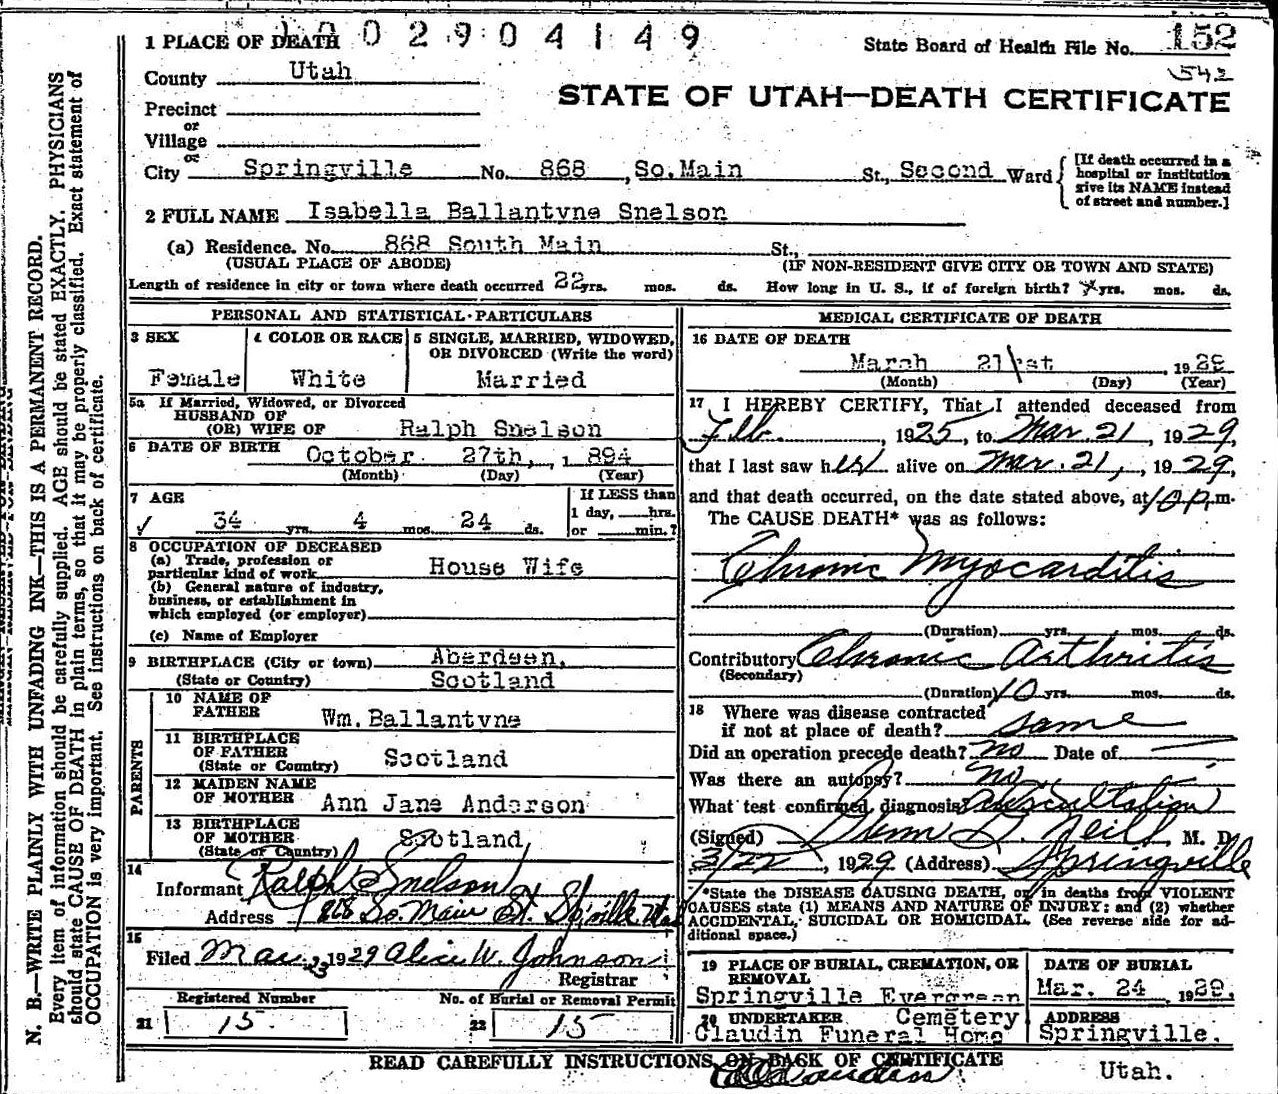 1 PLACE OF DEATH
1 0 0 2 9 0 4 1 4 9
State Board of Health File No. 152
542
County Utah
STATE OF UTAH—DEATH CERTIFICATE
Precinct
or
Village
or
City Springville No. 868, So. Main St., Second Ward
[If death occurred in a hospital or institution give its NAME instead of street and number.]
2 FULL NAME Isabella Ballantyne Snelson
(a) Residence. No. 868 South Main St.,
(USUAL PLACE OF ABODE) (IF NON-RESIDENT GIVE CITY OR TOWN AND STATE)
Length of residence in city or town where death occurred 22 yrs. mos. ds. How long in U. S., if of foreign birth? yrs. mos. ds.
PERSONAL AND STATISTICAL PARTICULARS
3 SEX
Female
4 COLOR OR RACE
White
5 SINGLE, MARRIED, WIDOWED,
OR DIVORCED (Write the word)
Married
5a If Married, Widowed, or Divorced
HUSBAND OF
(OR) WIFE OF Ralph Snelson
6 DATE OF BIRTH October 27th, 1894
(Month) (Day) (Year)
7 AGE
34 yrs. 4 mos. 24 ds.
If LESS than
1 day, hrs.
or min.?
8 OCCUPATION OF DECEASED
(a) Trade, profession or
particular kind of work House Wife
(b) General nature of industry,
business, or establishment in
which employed (or employer)
(c) Name of Employer
9 BIRTHPLACE (City or town) Aberdeen,
(State or Country) Scotland
PARENTS
10 NAME OF
FATHER Wm. Ballantyne
11 BIRTHPLACE
OF FATHER Scotland
(State or Country)
12 MAIDEN NAME
OF MOTHER Ann Jane Anderson
13 BIRTHPLACE
OF MOTHER Scotland
(State or Country)
14
Informant Ralph Snelson
Address 868 So. Main St. Sp'ville Utah
15
Filed Mar. 23 1929 Alice W. Johnson
Registrar
Registered Number
21 15
No. of Burial or Removal Permit
22 15
MEDICAL CERTIFICATE OF DEATH
16 DATE OF DEATH
March 21st, 1929
(Month) (Day) (Year)
17 I HEREBY CERTIFY, That I attended deceased from
Feb. , 1925, to Mar. 21, 1929,
that I last saw her alive on Mar. 21, 1929,
and that death occurred, on the date stated above, at 10 p.m.
The CAUSE DEATH* was as follows:
Chronic Myocarditis
(Duration) yrs. mos. ds.
Contributory Chronic Arthritis
(Secondary)
(Duration) 10 yrs. mos. ds.
18 Where was disease contracted
if not at place of death? same
Did an operation precede death? no Date of
Was there an autopsy? no
What test confirmed diagnosis Auscultation
(Signed) Glenn D. Neill M. D.
3/22, 1929 (Address) Springville
*State the DISEASE CAUSING DEATH, or in deaths from VIOLENT
CAUSES state (1) MEANS AND NATURE OF INJURY; and (2) whether
ACCIDENTAL, SUICIDAL OR HOMICIDAL. (See reverse side for ad-
ditional space.)
19 PLACE OF BURIAL, CREMATION, OR
REMOVAL
Springville Evergreen
Cemetery
DATE OF BURIAL
Mar. 24 1929.
20 UNDERTAKER
Claudin Funeral Home
ADDRESS
Springville.
Utah.
READ CAREFULLY INSTRUCTIONS ON BACK OF CERTIFICATE
N. B.—WRITE PLAINLY WITH UNFADING INK—THIS IS A PERMANENT RECORD.
Every item of information should be carefully supplied. AGE should be stated EXACTLY. PHYSICIANS
should state CAUSE OF DEATH in plain terms, so that it may be properly classified. Exact statement of
OCCUPATION is very important. See instructions on back of certificate.